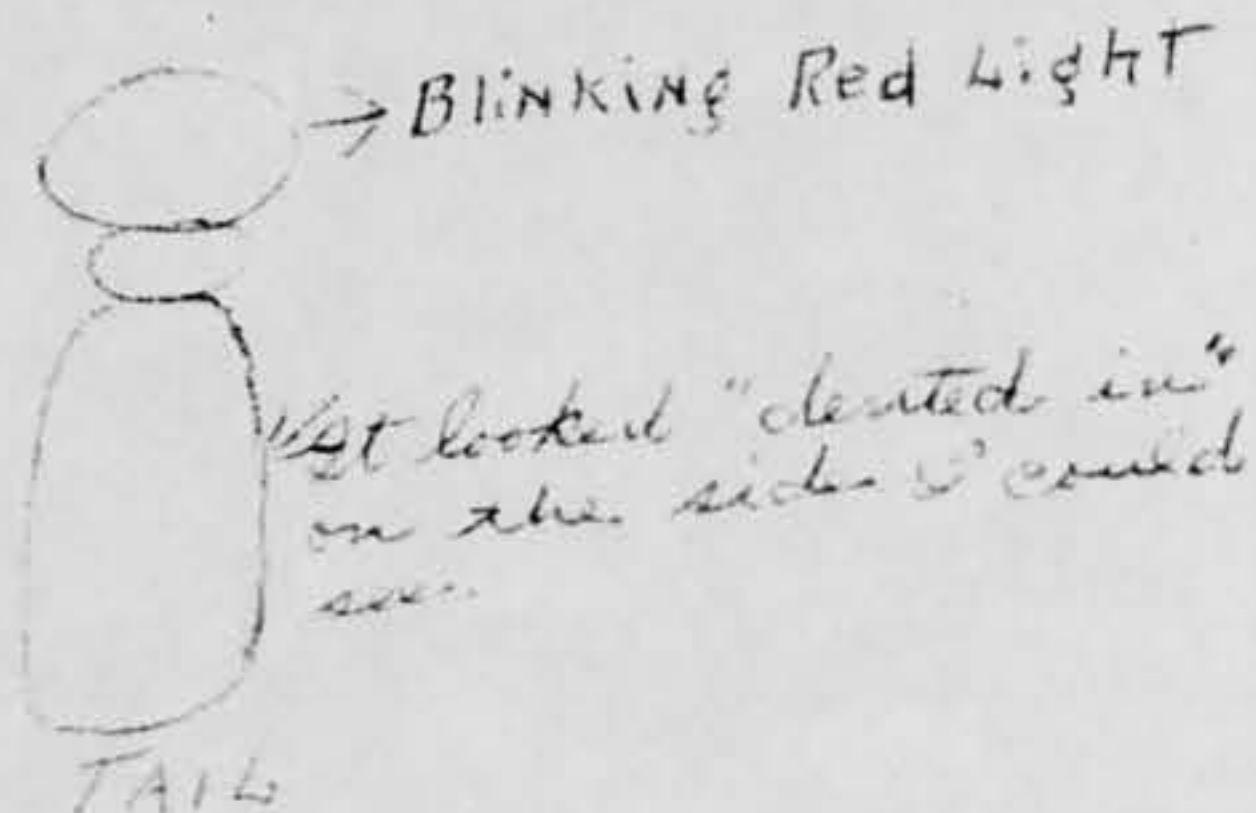 Blinking Red Light
It looked "dented in"
on the side I could
see.
TAIL